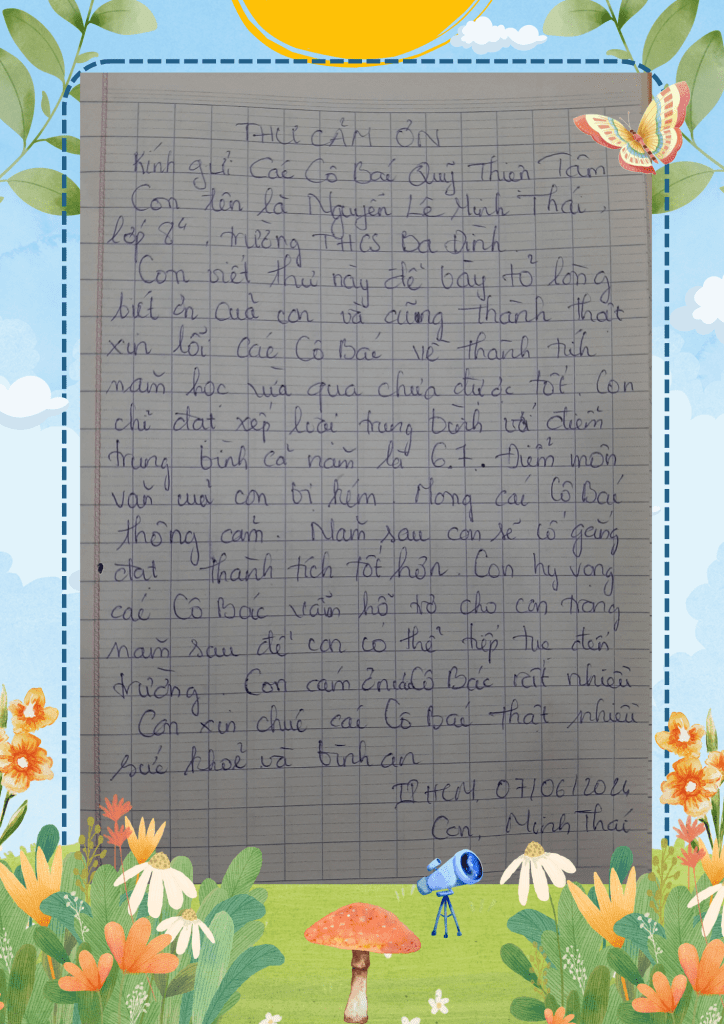 THƯ CẢM ƠN
Kính gửi Các Cô Bác Quỹ Thiện Tâm
Con tên là Nguyễn Lê Minh Thái,
lớp 8⁴, trường THCS Ba Đình.
Con viết thư này để bày tỏ lòng
biết ơn của con và cũng thành thật
xin lỗi các Cô Bác về thành tích
năm học vừa qua chưa được tốt. Con
chỉ đạt xếp loại trung bình với điểm
trung bình cả năm là 6.7. Điểm môn
văn của con bị kém. Mong các Cô Bác
thông cảm. Năm sau con sẽ cố gắng
đạt thành tích tốt hơn. Con hy vọng
các Cô Bác vẫn hỗ trợ cho con trong
năm sau để con có thể tiếp tục đến
trường. Con cám ơn các Cô Bác rất nhiều
Con xin chúc các Cô Bác thật nhiều
sức khoẻ và bình an
TPHCM, 07/06/2024
Con, Minh Thái